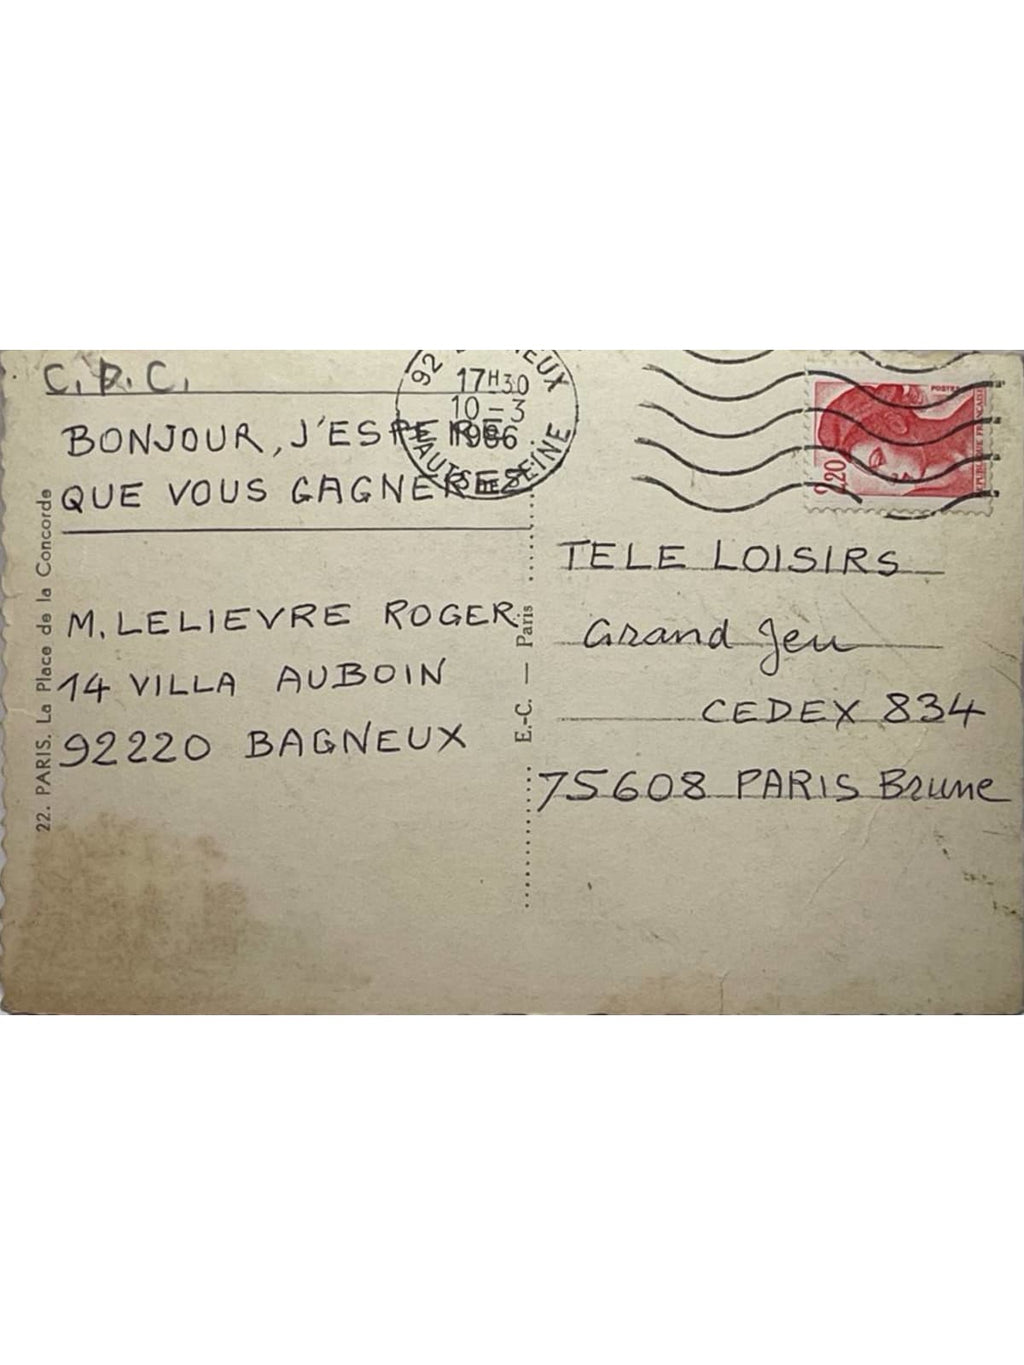 C.D.C.
BONJOUR, J'ESPERE
QUE VOUS GAGNEREZ
M. LELIEVRE ROGER
14 VILLA AUBOIN
92220 BAGNEUX
22. PARIS. La Place de la Concorde
E.-C. — Paris
92 EUX
17H30
10-3
1986
HAUTS DE SEINE
2,20
POSTES
REPUBLIQUE FRANÇAISE
TELE LOISIRS
Grand Jeu
CEDEX 834
75608 PARIS Brune